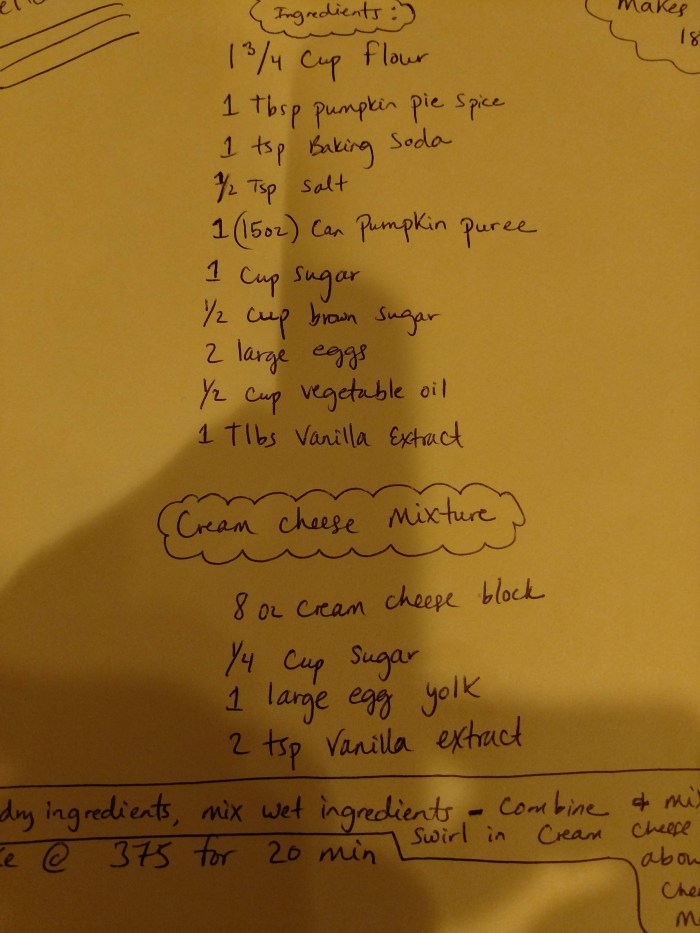 Ingredients:
Makes
18
1 3/4 Cup flour
1 Tbsp pumpkin pie spice
1 tsp Baking Soda
1/2 Tsp salt
1 (15oz) Can Pumpkin puree
1 Cup sugar
1/2 cup brown sugar
2 large eggs
1/2 cup vegetable oil
1 Tlbs Vanilla Extract
Cream cheese Mixture
8 oz cream cheese block
1/4 Cup Sugar
1 large egg yolk
2 tsp Vanilla extract
dry ingredients, mix wet ingredients - Combine & mi
swirl in Cream cheese
@ 375 for 20 min
abou
Che
M